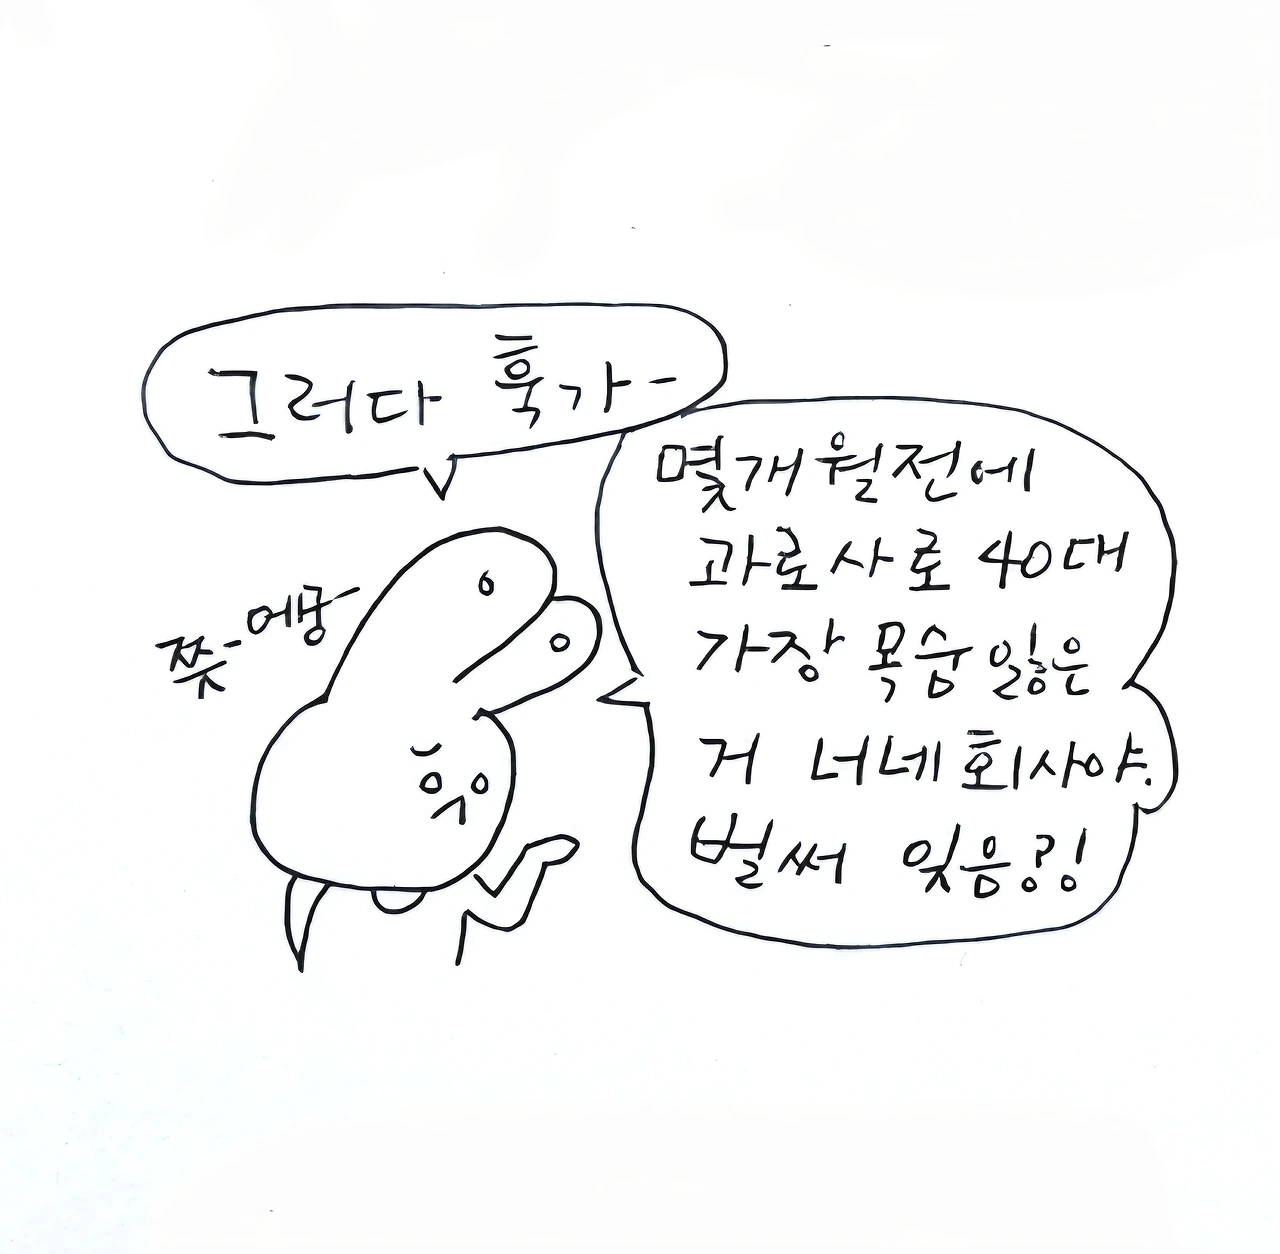 그러다 훅가-
몇개월전에
과로사로 40대
가장 목숨 잃은
거 너네 회사야.
벌써 잊음?!
쯧-에궁-